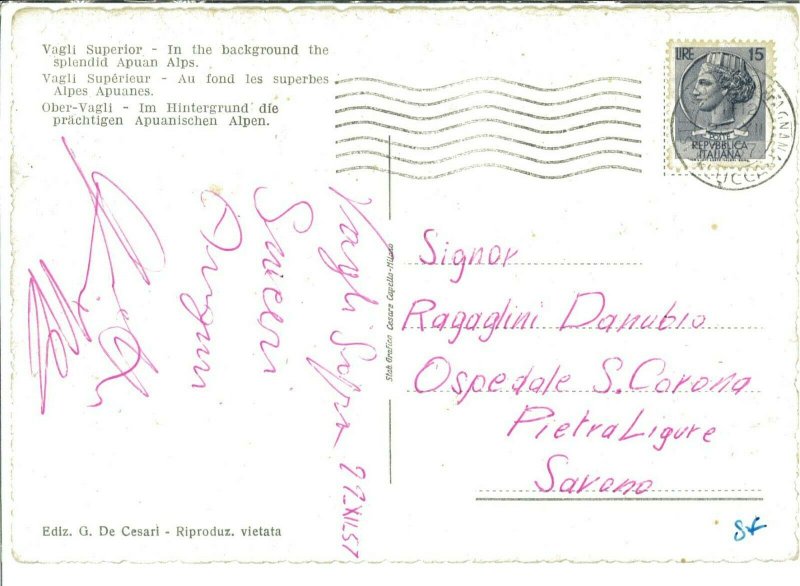 Vagli Superior - In the background the
splendid Apuan Alps.
Vagli Supérieur - Au fond les superbes
Alpes Apuanes.
Ober-Vagli - Im Hintergrund die
prächtigen Apuanischen Alpen.
LIRE 15
POSTE
REPVBBLICA
ITALIANA
LUCCA
Vagli
Sinceri
Auguri
Stab. Grafico Cesare Capello - Milano
Signor
Ragaglini Danubio
Ospedale S. Corona
Pietra Ligure
Savona
Ediz. G. De Cesari - Riproduz. vietata